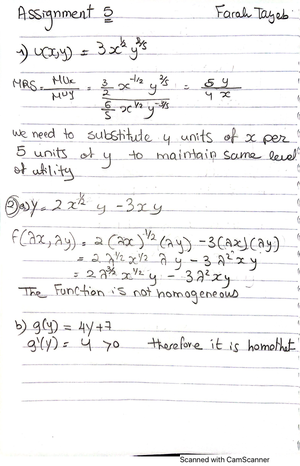 Assignment 5 Farah Tayeb
1) U(x,y) = 3x^1/2 y^2/5
MRS = MUx/MUy = (3/2 x^-1/2 y^2/5)/(6/5 x^1/2 y^-3/5) = 5y/4x
we need to substitute 4 units of x per
5 units of y to maintain same level
of utility
2) a) y = 2x^1/2 y - 3xy
f(λx, λy) = 2(λx)^-1/2 (λy) - 3(λx)(λy)
= 2λ^1/2 x^1/2 λy - 3λ^2 xy
= 2λ^3/2 x^1/2 y - 3λ^2 xy
The Function is not homogeneous
b) g(y) = 4y+7
g'(y) = 4 >0 therefore it is homothet
Scanned with CamScanner